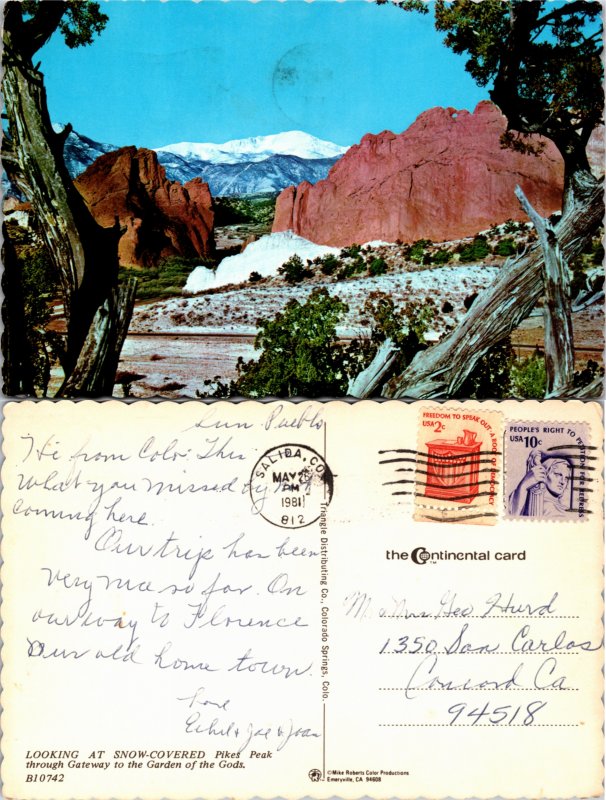 Sun Pueblo
Hi from Colo. This
what you missed by not
coming here.
Our trip has been
very nice so far. On
our way to Florence
our old home town.
Love
Ethel & Joe & Joan
LOOKING AT SNOW-COVERED Pikes Peak
through Gateway to the Garden of the Gods.
B10742
Triangle Distributing Co., Colorado Springs, Colo.
SALIDA, CO
MAY
PM
1981
812
FREEDOM TO SPEAK OUT-A ROOT OF DEMOCRACY
USA 2c
PEOPLE'S RIGHT TO PETITION FOR REDRESS
USA 10c
the Continental card
TM
Mr & Mrs Geo Hurd
1350 San Carlos
Concord Ca
94518
©Mike Roberts Color Productions
Emeryville, CA 94608